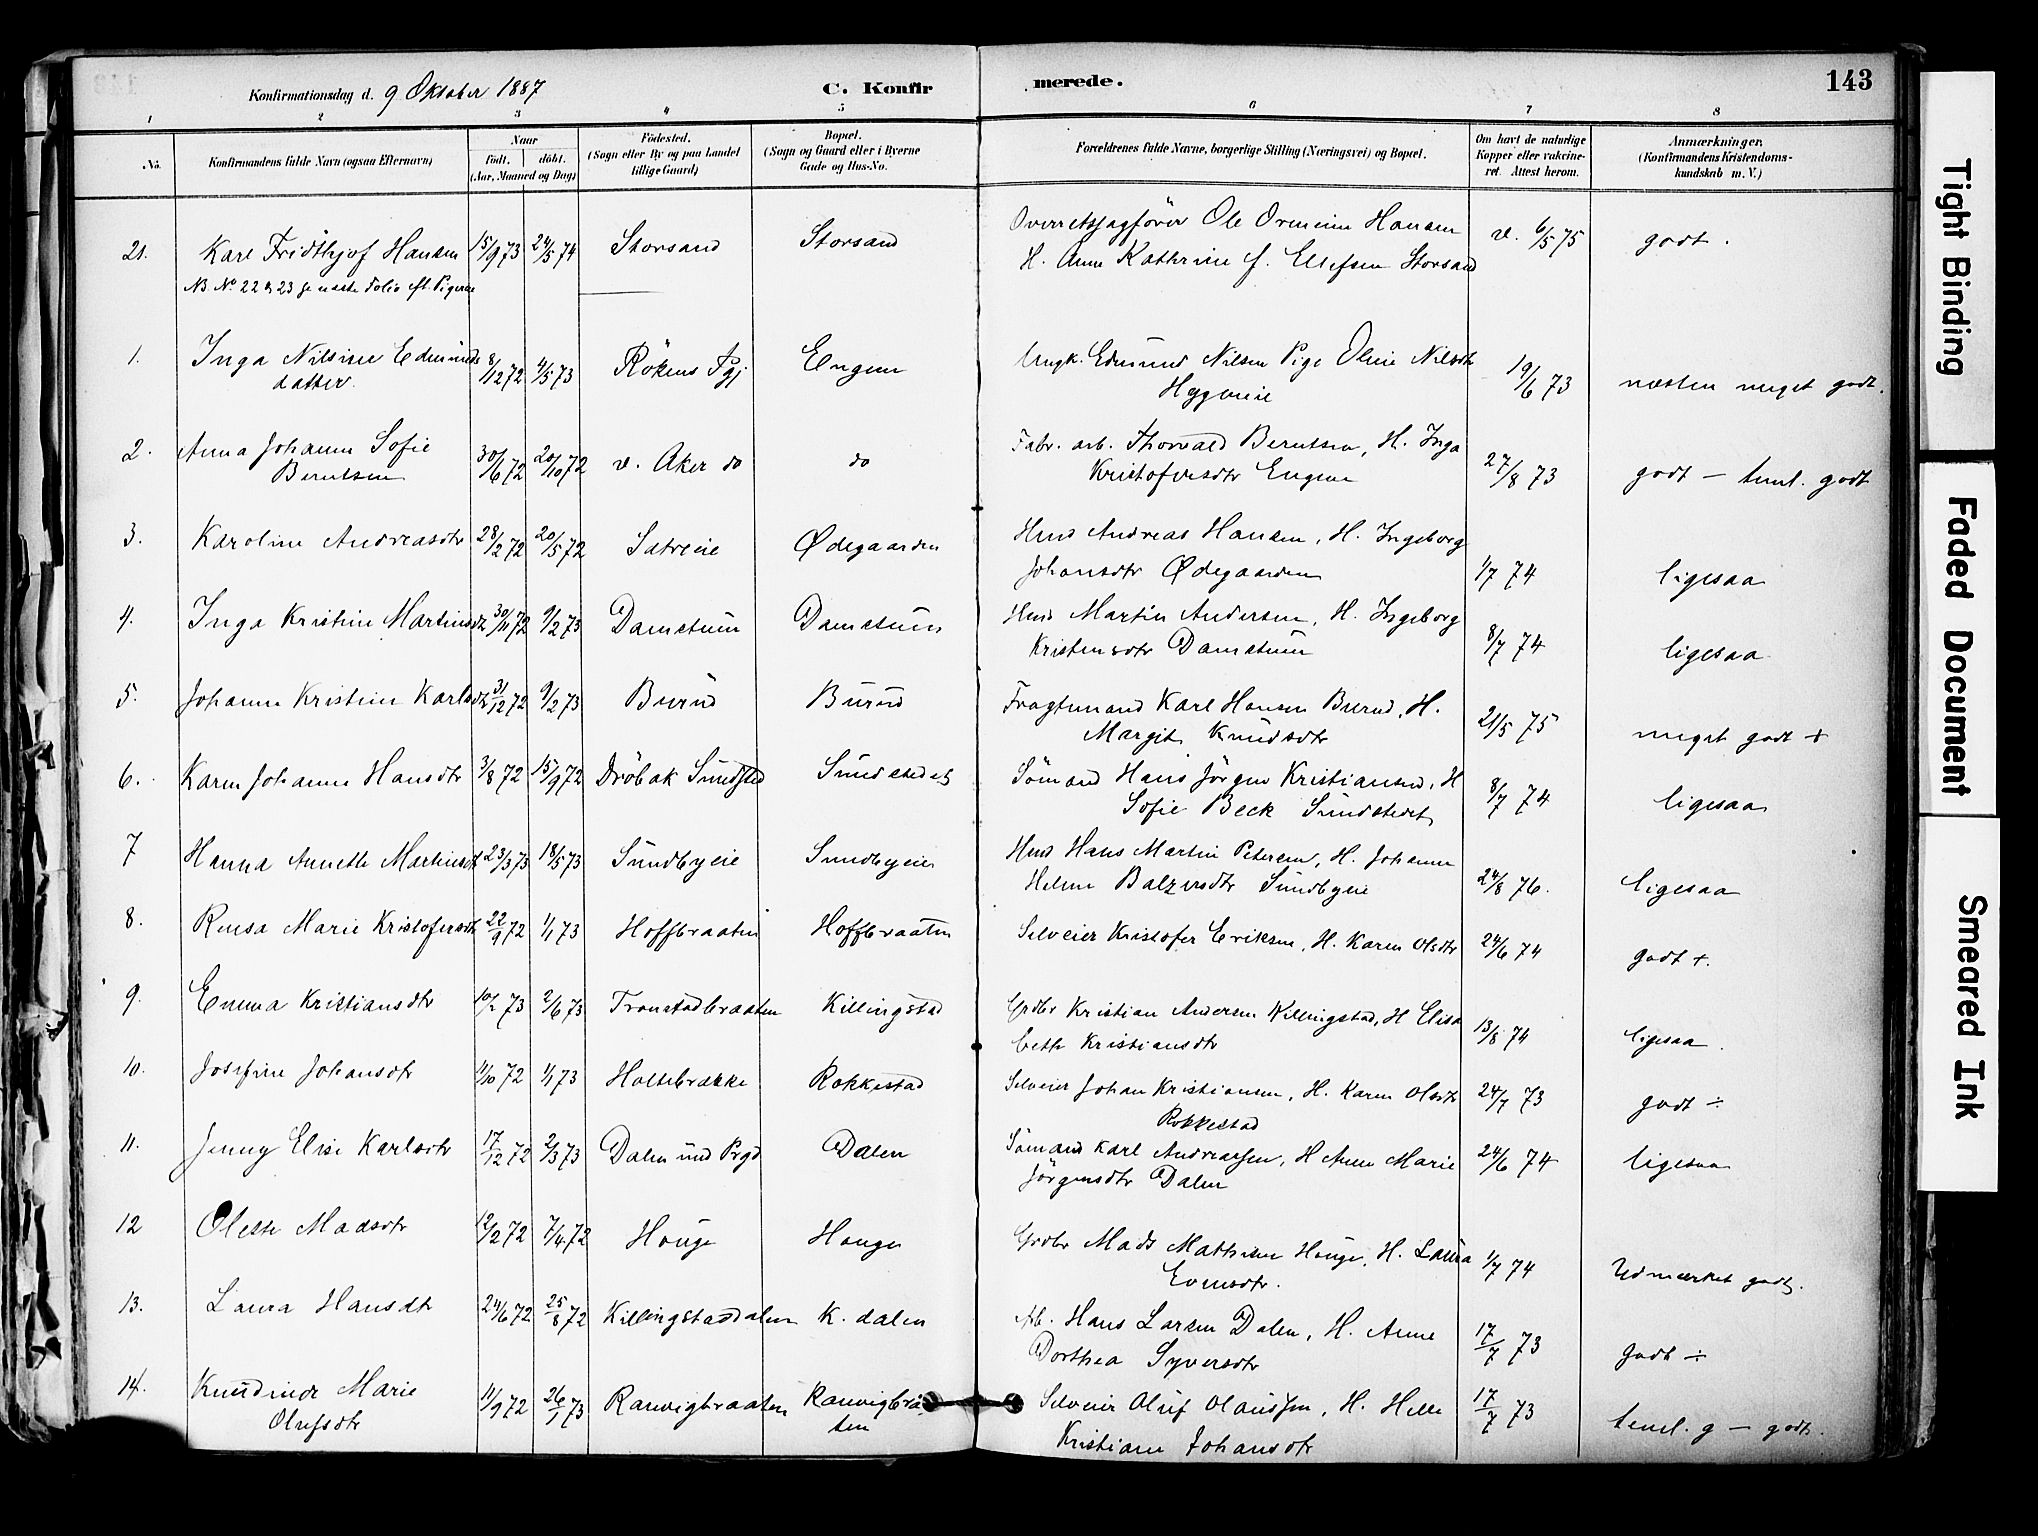 Konfirmationsdag d. 9 Oktober 1887 C. Konfirmerede. 143
1 2 3 4 5 6 7 8
No. Konfirmandens fulde Navn (ogsaa Efternavn) Naar født. døbt. (Aar, Maaned og Dag) Födested. (Sogn eller By og paa Landet tillige Gaard) Bopæl. (Sogn og Gaard eller i Byerne Gade og Hus-No. Forældrenes fulde Navne, borgerlige Stilling (Næringsvei) og Bopæl. Om havt de naturlige Kopper eller vakcineret. Attest herom. Anmærkninger. (Konfirmandens Kristendomskundskab m.V.)
21. Karl Fridthjof Hansen 15/9 73 24/5 74 Storsand Storsand Overretssagfører Ole Hansen
H. Anna Kathrine f. Ellefsen Storsand v. 6/5 75 godt.
NB No 22 & 23 se næste Folio eft. Pigerne
1. Inga Nilsine Edmunds 8/12 72 4/5 73 Rökens Pgj Engene Ungk. Edmund Nilsen Pige Oline Nilsdtr
datter. 19/6 73 næsten meget godt.
2. Anna Johanne Sofie 30/6 72 20/10 72 v. Aker do do Fabr. arb. Thorvald Berntsen, H. Inga
Berntsen Kristofersdtr Engene 27/8 73 godt — teml. godt
3. Karoline Andreasdtr 28/2 72 20/5 72 Sætreeie Ødegaarden Hmd Andreas Hansen, H. Ingeborg
Johansdtr Ødegaarden 1/7 74 ligesaa
4. Inga Kristine Martinsdtr 30/11 72 9/2 73 Damstuen Damstuen Hmd Martin Andersen, H. Ingeborg
Kristensdtr Damstuen 8/7 74 ligesaa
5. Johanne Kristine Karlsdtr 31/12 72 9/2 73 Burud Burud Fragtmand Karl Hansen Burud, H.
Margit Knudsdtr 21/5 75 meget godt +
6. Karen Johanne Hansdtr 3/8 72 15/9 72 Dröbak Sundsted Sundstedet Sömand Hans Jörgen Kristiansen, H
Sofie Beck Sundstedet 8/7 74 ligesaa
7 Hanna Annette Martinsdtr 23/3 73 18/5 73 Sundbyeie Sundbyeie Hmd Hans Martin Petersen, H. Johanne
Helene Balzersdtr Sundbyeie 24/8 76. ligesaa
8. Rensa Marie Kristofersdtr 22/9 72 1/1 73 Hoffbraaten Hoffbraaten Selveier Kristofer Eriksen, H. Karen Olsdtr 24/6 74 godt +.
9. Emma Kristiansdtr 10/2 73 2/6 73 Tronstadbraaten Killingstad Grdbr Kristian Andersen Killingstad, H Elisa
beth Kristiansdtr 13/8 74 ligesaa.
10. Josefine Johansdtr 11/10 72 1/1 73 Holtebrække Rokkestad Selveier Johan Kristiansen, H. Karen Olsdtr
Rokkestad 24/7 73 godt ÷
11. Jenny Elise Karlsdtr 17/12 72 2/3 73 Dalen und Prgd Dalen Sömand Karl Andreassen, H Anne Marie
Jörgensdtr Dalen 24/6 74 ligesaa
12 Olette Madsdtr 12/2 72 7/4 72 Houge Houge Grdbr Mads Mathisen Houge, H. Laura
Evensdtr. 1/7 74 Udmærket godt.
13. Laura Hansdtr 24/6 72 25/8 72 Killingstaddalen K. dalen Arb. Hans Larsen Dalen, H. Anne
Dorthea Syversdtr 17/7 73 godt ÷
14. Knudine Marie 11/9 72 26/1 73 Ramvigbraaten Ramvigbraa
Olufsdtr ten Selveier Oluf Olaussen, H. Helle
Kristiane Johansdtr 17/7 73 teml. g — godt.
Tight Binding
Faded Document
Smeared Ink